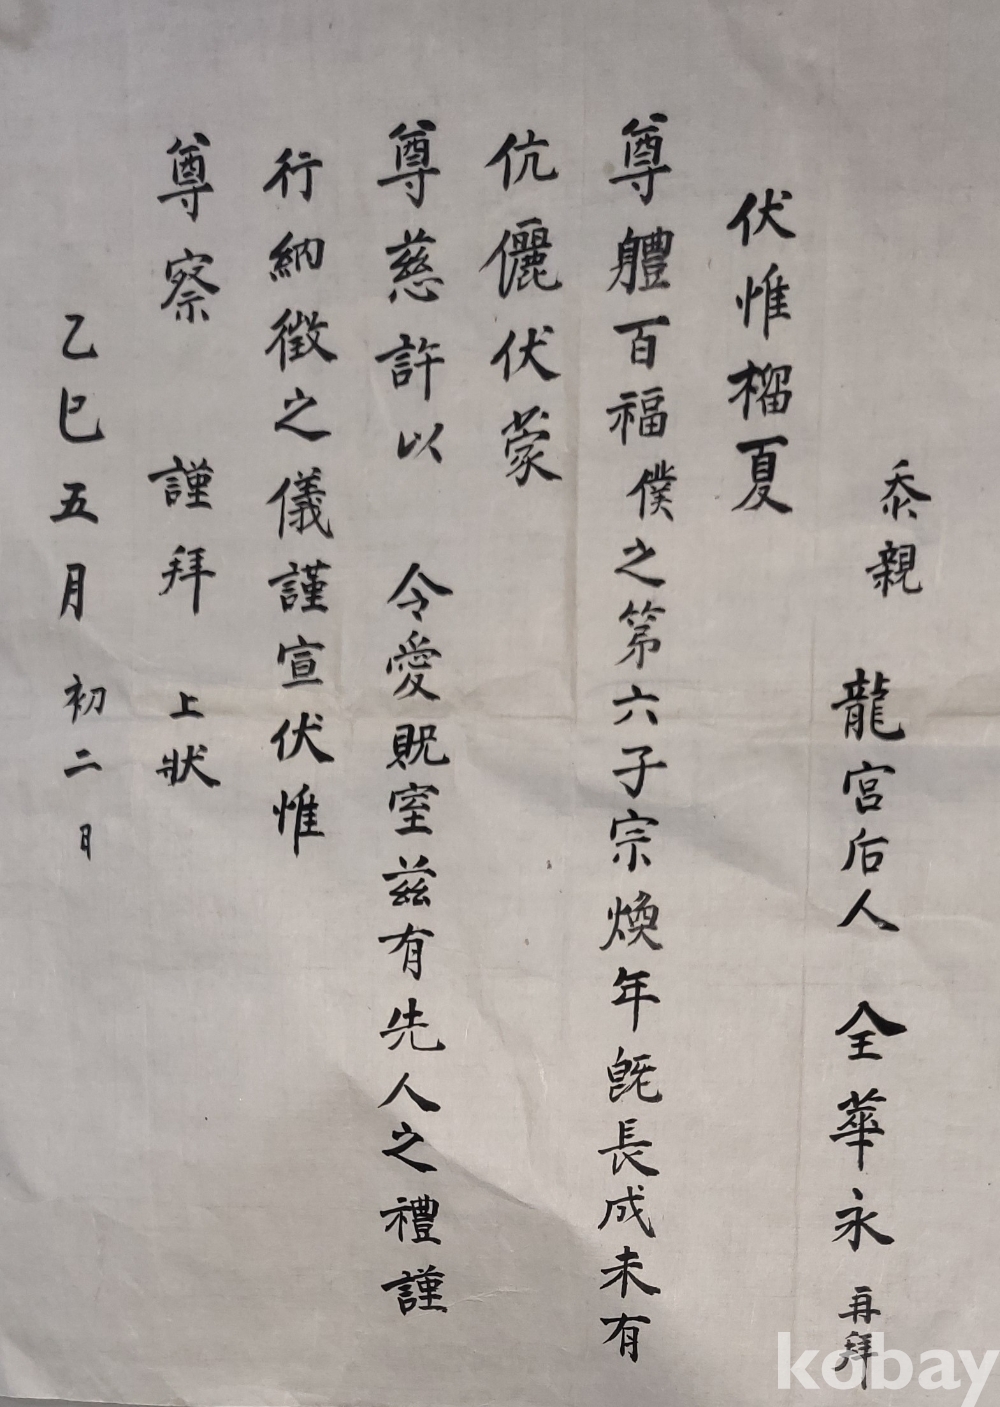 忝親 龍宮后人 全華永 再拜
伏惟榴夏
尊體百福僕之第六子宗煥年旣長成未有
伉儷伏蒙
尊慈許以 令愛貺室茲有先人之禮謹
行納徵之儀謹宣伏惟
尊察 謹拜 上狀
乙巳五月初二日
kobay